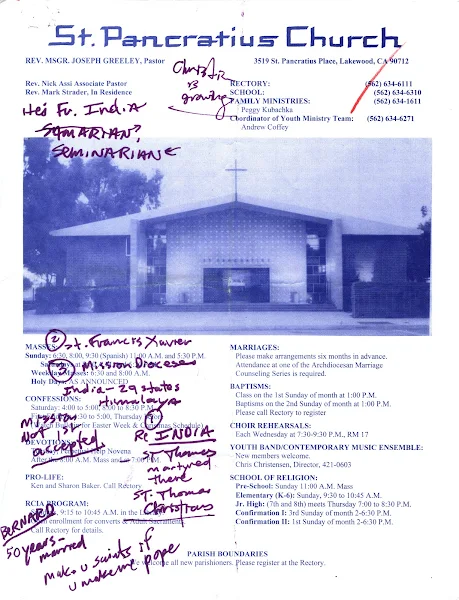 St. Pancratius Church
REV. MSGR. JOSEPH GREELEY, Pastor
3519 St. Pancratius Place, Lakewood, CA 90712
Rev. Nick Assi Associate Pastor
Rev. Mark Strader, In Residence
RECTORY: (562) 634-6111
SCHOOL: (562) 634-6310
FAMILY MINISTRIES: (562) 634-1611
Peggy Kubachka
Coordinator of Youth Ministry Team: (562) 634-6271
Andrew Coffey
growing
He's Fr. India
SEMINARIAN
ST PANCRATIUS
2 St. Francis Xavier
MASSES
Sunday: 6:30, 8:00, 9:30 (Spanish) 11:00 A.M. and 5:30 P.M.
Mission Diocese
Weekday Masses: 6:30 and 8:00 A.M.
India - 29 states
Holy Days: AS ANNOUNCED
Himalaya
CONFESSIONS:
Saturday: 4:00 to 5:00, 8:00 to 8:30 P.M.
5:30 P.M. Thursday, 7:00 P.M.
Bulletin for Easter Week & Christmas Schedule)
Not 1st
accepted
Re INDIA
Novena
After the 8:00 A.M. Mass and 7:00 P.M.
Thomas
martyred
there
PRO-LIFE:
Ken and Sharon Baker. Call Rectory
St. Thomas
Christians
RCIA PROGRAM:
9:15 to 10:45 A.M. in the
enrollment for converts & Adult Sacraments
Call Rectory for details.
BERNARD
50 years -
married
make u saints if
u make me pope
MARRIAGES:
Please make arrangements six months in advance.
Attendance at one of the Archdiocesan Marriage
Counseling Series is required.
BAPTISMS:
Class on the 1st Sunday of month at 1:00 PM.
Baptisms on the 2nd Sunday of month at 1:00 PM.
Please call Rectory to register
CHOIR REHEARSALS:
Each Wednesday at 7:30-9:30 P.M., RM 17
YOUTH BAND/CONTEMPORARY MUSIC ENSEMBLE:
New members welcome.
Chris Christensen, Director, 421-0603
SCHOOL OF RELIGION:
Pre-School: Sunday 11:00 A.M. Mass
Elementary (K-6): Sunday, 9:30 to 10:45 A.M.
Jr. High: (7th and 8th) meets Thursday 7:00 to 8:30 P.M.
Confirmation I: 3rd Sunday of month 2-6:30 P.M.
Confirmation II: 1st Sunday of month 2-6:30 P.M.
PARISH BOUNDARIES
We welcome all new parishioners. Please register at the Rectory.